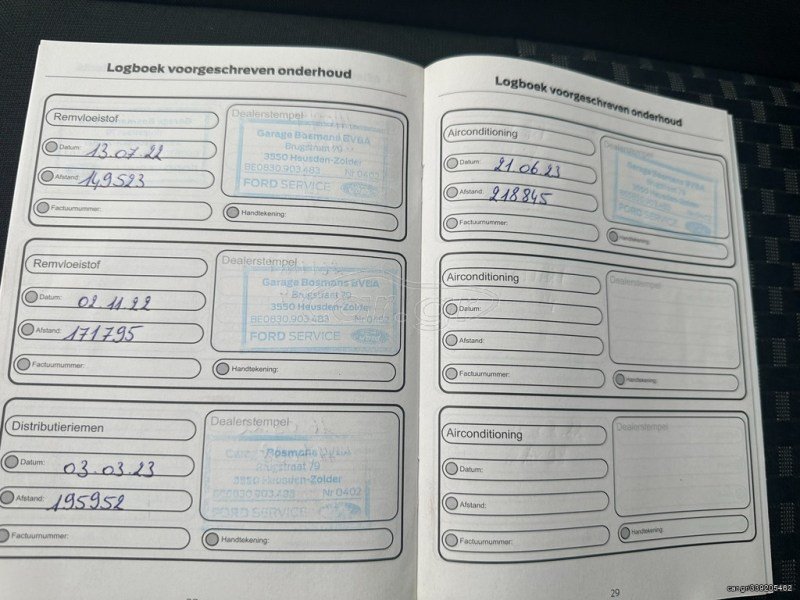 Logboek voorgeschreven onderhoud
Remvloeistof
Datum: 13.07.22
Afstand: 149523
Factuurnummer:
Dealerstempel
Garage Bosmans BVBA
Brugstraat 79
3550 Heusden-Zolder
BE0830.903.483 Nr 0402
FORD SERVICE
Handtekening:
Remvloeistof
Datum: 02.11.22
Afstand: 171795
Factuurnummer:
Dealerstempel
Garage Bosmans BVBA
Brugstraat 79
3550 Heusden-Zolder
BE0830.903.483 Nr 0402
FORD SERVICE
Handtekening:
Distributieriemen
Datum: 03.03.23
Afstand: 195952
Factuurnummer:
Dealerstempel
Garage Bosmans BVBA
Brugstraat 79
3550 Heusden-Zolder
BE0830.903.483 Nr 0402
FORD SERVICE
Handtekening:
Logboek voorgeschreven onderhoud
Airconditioning
Datum: 21.06.23
Afstand: 218845
Factuurnummer:
Dealerstempel
Garage Bosmans BVBA
Brugstraat 79
3550 Heusden-Zolder
FORD SERVICE
Handtekening:
Airconditioning
Datum:
Afstand:
Factuurnummer:
Dealerstempel
Handtekening:
Airconditioning
Datum:
Afstand:
Factuurnummer:
Dealerstempel
Handtekening:
29
car.gr